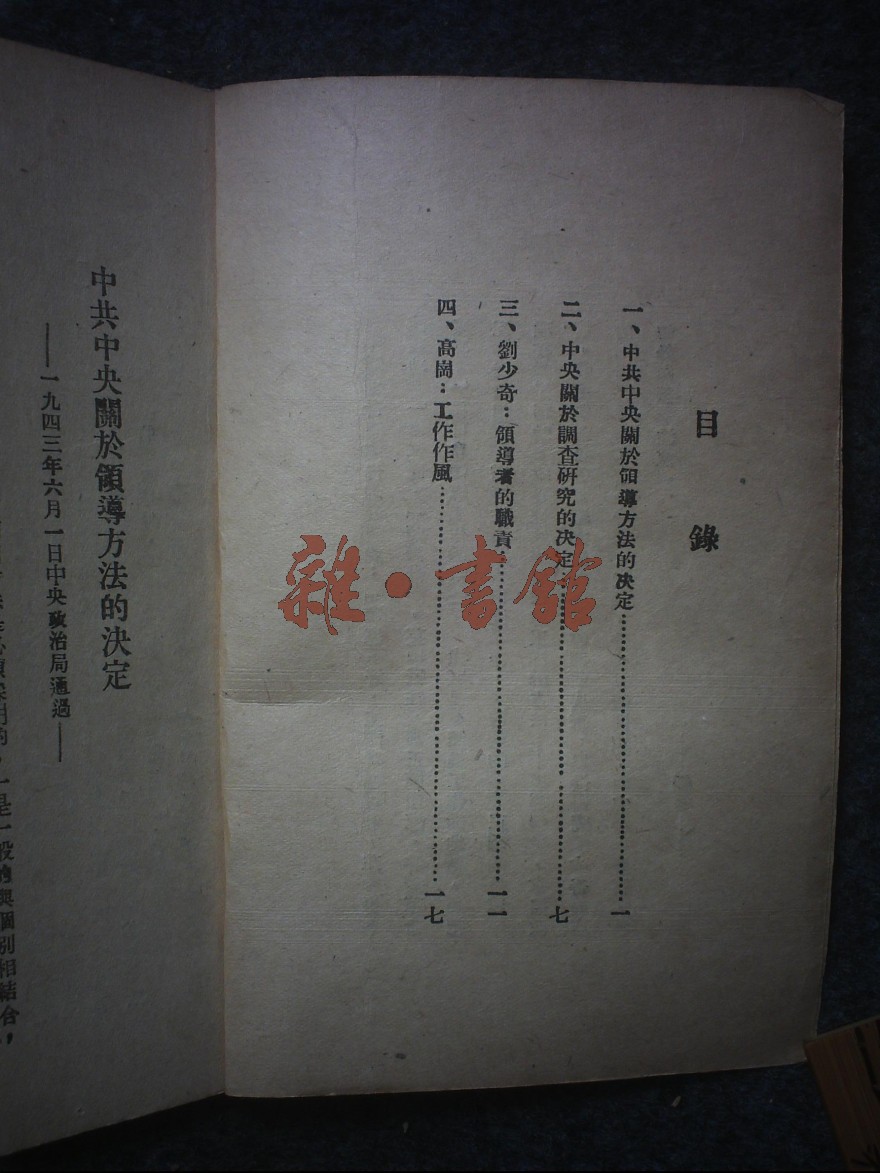 目錄
一、中共中央關於領導方法的决定……一
二、中央關於調查研究的决定……七
三、劉少奇：領導者的職責……一一
四、高崗：工作作風……一七
雜·書館
中共中央關於領導方法的決定
——一九四三年六月一日中央政治局通過——
是一般的與個別相結合，